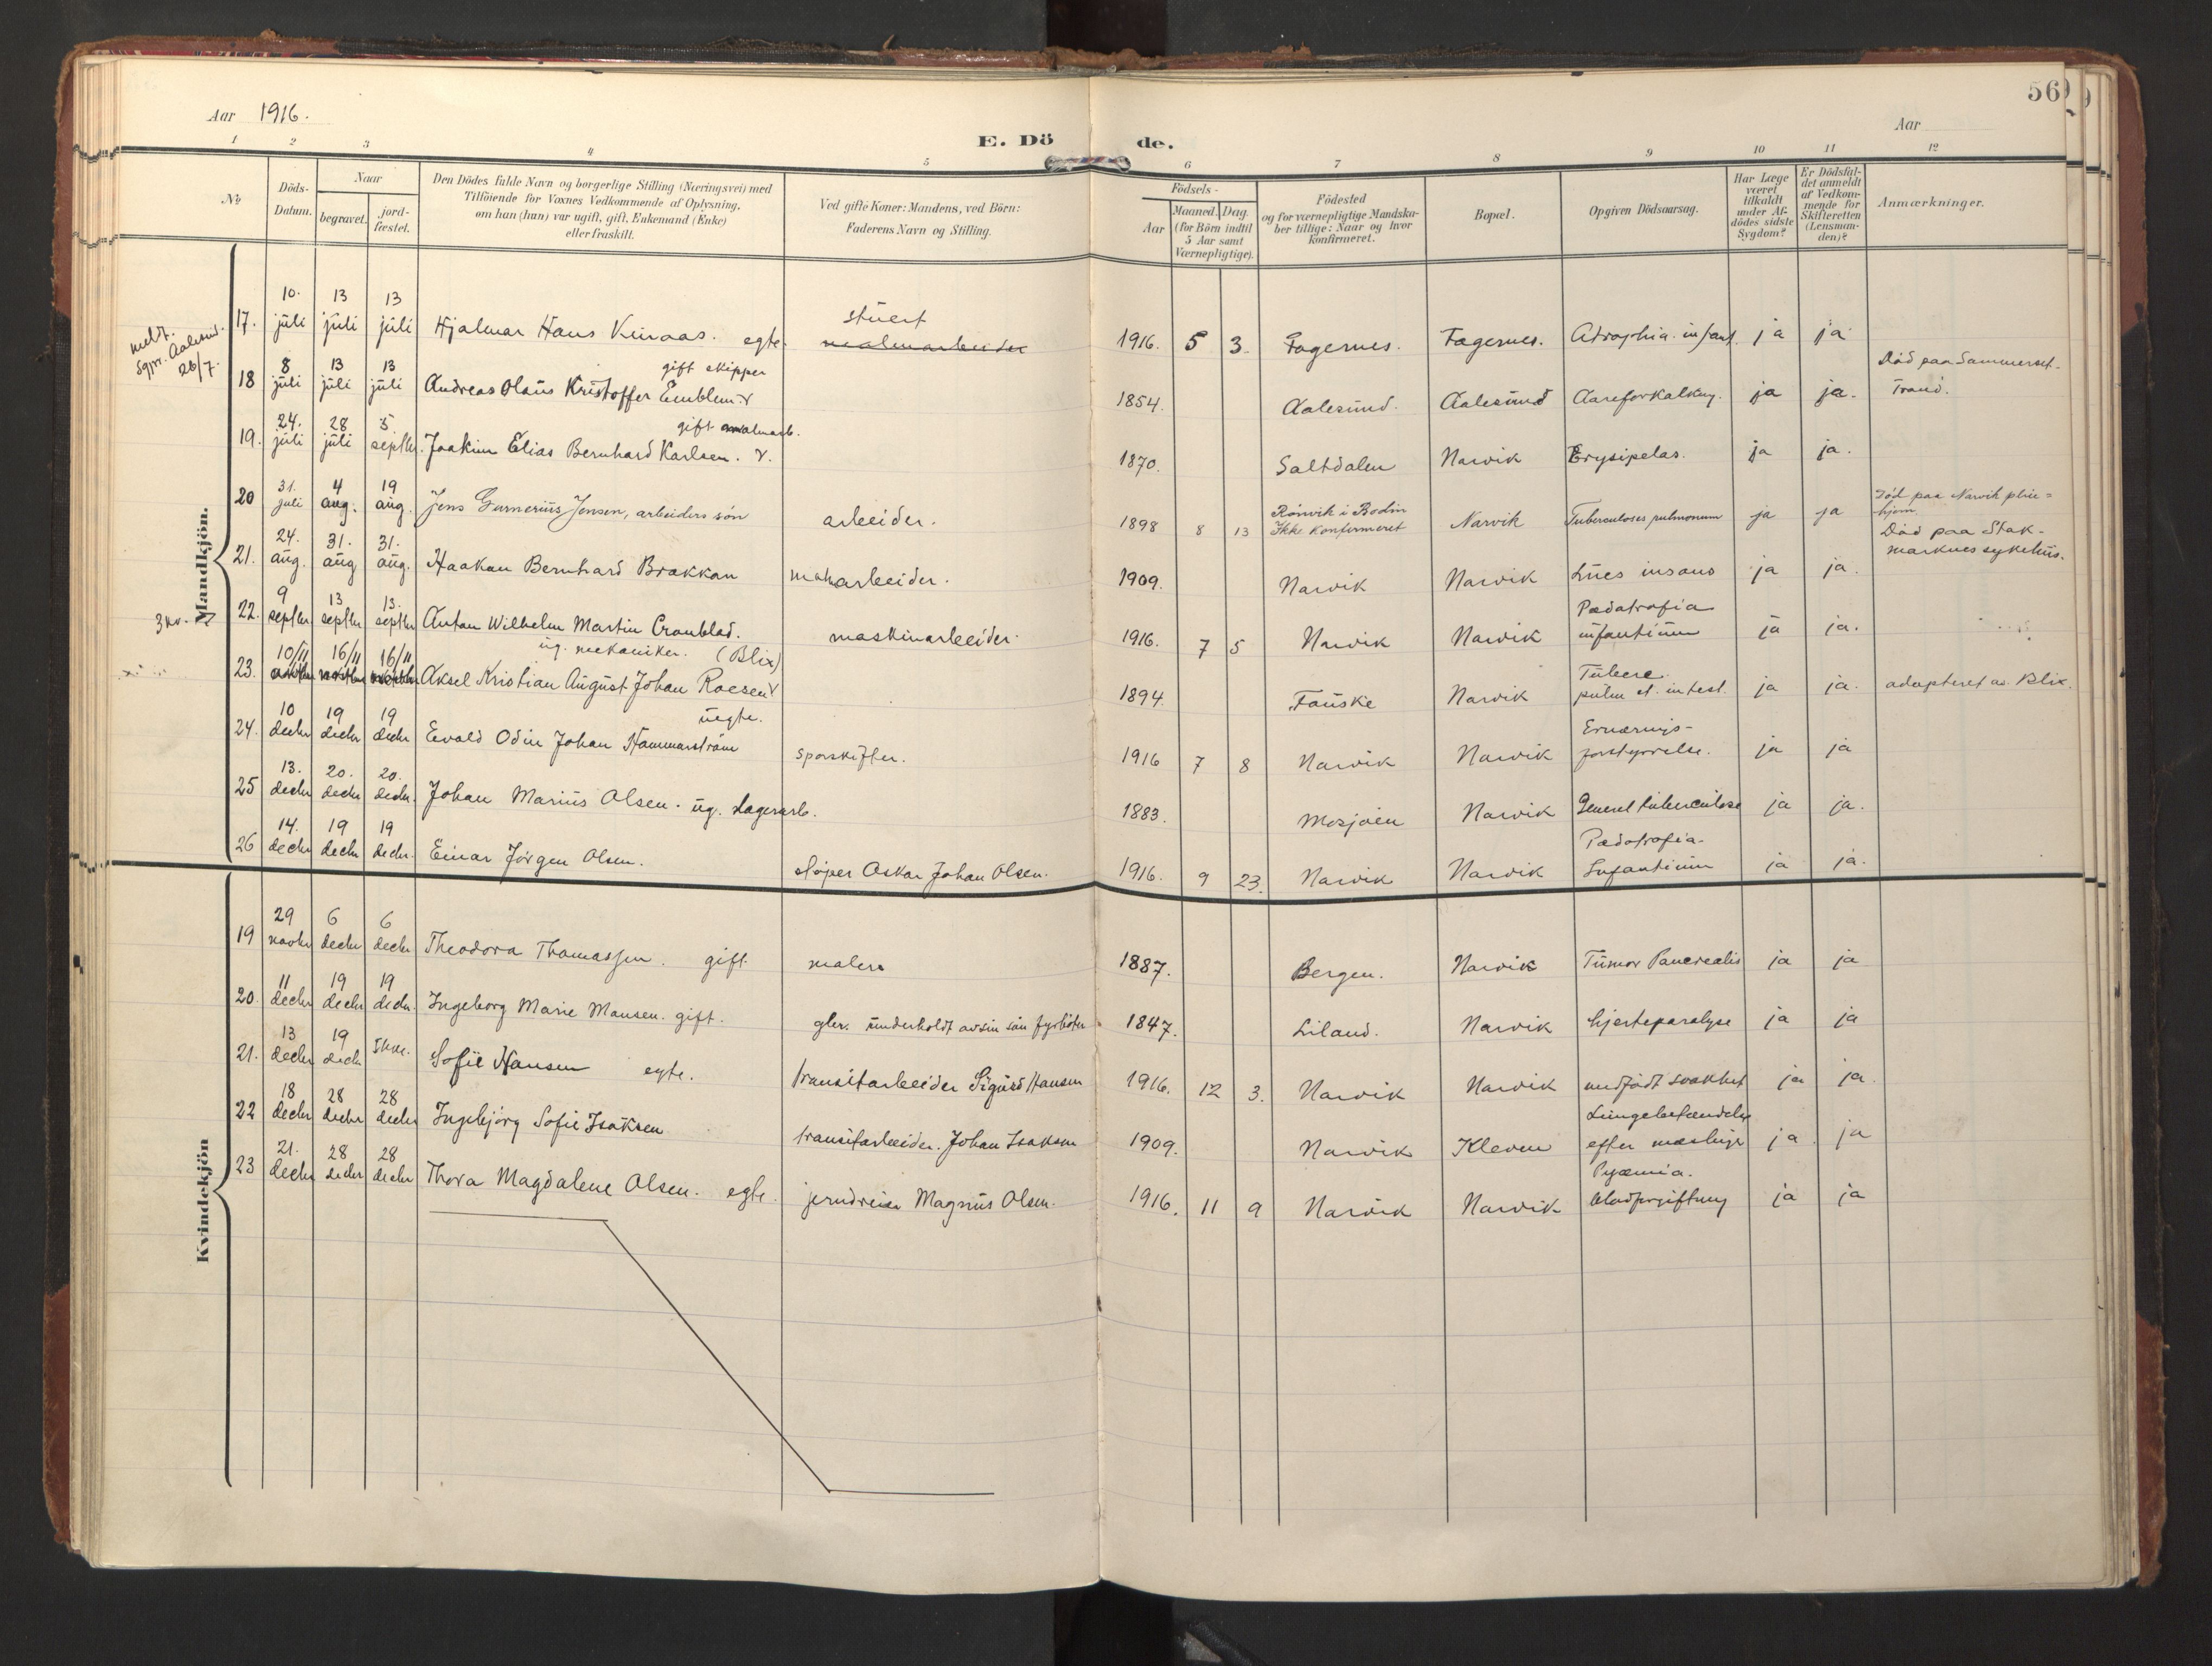 56
Aar 1916.
Aar
E. Dö de.
1 2 3 4 5 6 7 8 9 10 11 12
№
Döds-
Datum.
Naar
begravet.
jord-
fæstet.
Den Dödes fulde Navn og borgerlige Stilling (Næringsvei) med
Tilföiende for Voxnes Vedkommende af Oplysning,
om han (hun) var ugift, gift, Enkemand (Enke)
eller fraskilt.
Ved gifte Koner: Mandens, ved Börn:
Faderens Navn og Stilling.
Födsels-
Aar
Maaned. Dag.
(for Börn indtil
5 Aar samt
Værnepligtige).
Födested
og for værnepligtige Mandska-
ber tillige: Naar og hvor
konfirmeret.
Bopæl.
Opgiven Dödsaarsag.
Har Læge
været
tilkaldt
under Af-
dödes sidste
Sygdom?
Er Dödsfal-
det anmeldt
af Vedkom-
mende for
Skifteretten
(Lensman-
den)?
Anmærkninger.
Mandkjön.
meldt.
Sgpr. Aalesund.
26/7.
10. 13 13 stuert
17. juli juli juli Hjalmar Hans egte. malmarbeider 1916. 5 3. Fagernes. Fagernes. Atrophia. infant. ja ja
8 13 13 gift skipper Död paa Sommerset-
18 juli juli juli Andreas Olaus Kristoffer Emblem. 1854. Aalesund. Aalesund Aareforkalkng. ja ja. Trand.
24. 28 5. gift malmarb.
19. juli juli septbr. Joakim Elias Bernhard Karlsen. 1870. Saltdalen Narvik Erysipelas. ja ja.
31. 4 19 Rönvik i Bodin Död paa Narvik pleie=
20 juli aug. aug. Jens Gunnerius Jensen, arbeiders sön arbeider. 1898 8 13 Ikke konfirmeret Narvik Tuberculoses pulmonum ja ja hjem
24. 31. 31. Död paa Stok-
21. aug. aug aug. Haakon Bernhard Brakkan malmarbeider. 1909. Narvik Narvik Lues ja ja. marknes sykehus.
9 13 13. Pædatrofia
3 kv. 22. septbr septbr septbr Anton Wilhelm Martin Cronblad. maskinarbeider. 1916. 7 5 Narvik Narvik infantium ja ja.
10/11 16/11 16/11 ug. mekaniker. (Blix) Tuberc.
23. Aksel Kristian August Johan Roesen 1894. Fauske Narvik pulm et. intest. ja ja. adopteret av Blix.
10 19 19 uegte. Ernærings-
24. decbr decbr decbr Evald Odin Johan Hammarström sporskifter. 1916 7 8 Narvik Narvik forstyrrelse. ja ja
13. 20. 20.
25 decbr decbr decbr. Johan Marius Olsen. ug. Lagerarb. 1883. Mosjöen Narvik Generel tuberculose ja ja.
14. 19 19 Pædotrofia
26 decbr decbr decbr. Einar Jörgen Olsen. slöper Oskar Johan Olsen. 1916. 9 23. Narvik Narvik Infantium ja ja.
Kvindekjön
29 6 6
19 novbr decbr decbr Theodora Thomassen. gift maler 1887. Bergen. Narvik Tumor Pancreatis ja ja
11 19 19
20. decbr decbr decbr. Ingeborg Marie Monsen. gift. gbr. underholdt av sin sön fyrböter 1847. Liland. Narvik hjerteparalyse ja ja
13 19
21. decbr decbr Ikke. Sofie Hansen egte. transitarbeider Sigurd Hansen 1916. 12 3. Narvik Narvik medfödt svakhet ja ja.
18 28 28 Lungebetændelse
22 decbr decbr decbr Ingebjörg Sofie Isaksen transitarbeider. Johan Isaksen 1909. Narvik Kleven efter meslinger ja ja
21. 28 28 Pyæmia.
23 decbr decbr decbr Thora Magdalene Olsen. egte. jerndreier Magnus Olsen. 1916. 11 9 Narvik Narvik blodforgiftning ja ja